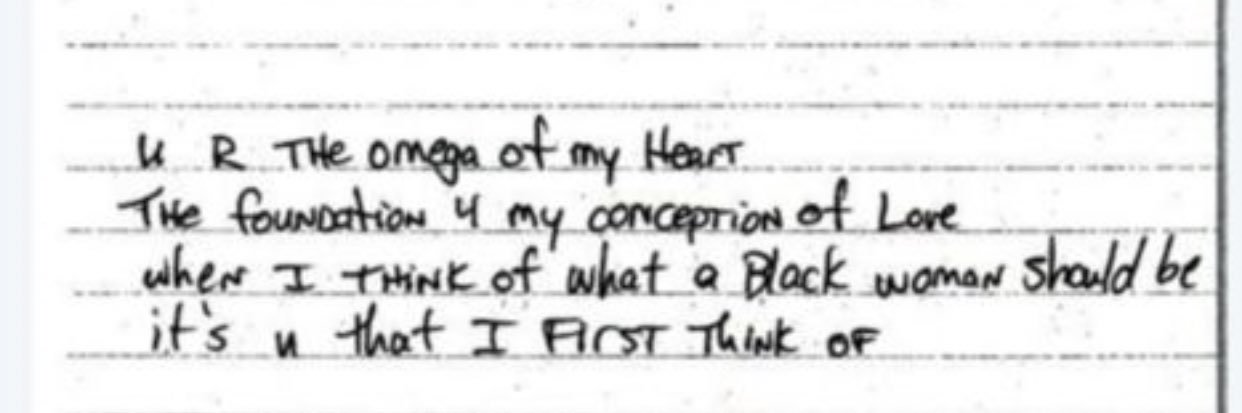 U R THe omega of my HearT
THe fouNDatioN 4 my coNcepTioN of Love
wheN I THiNK of what a Black womaN should be
it's u that I FIrST ThiNK OF